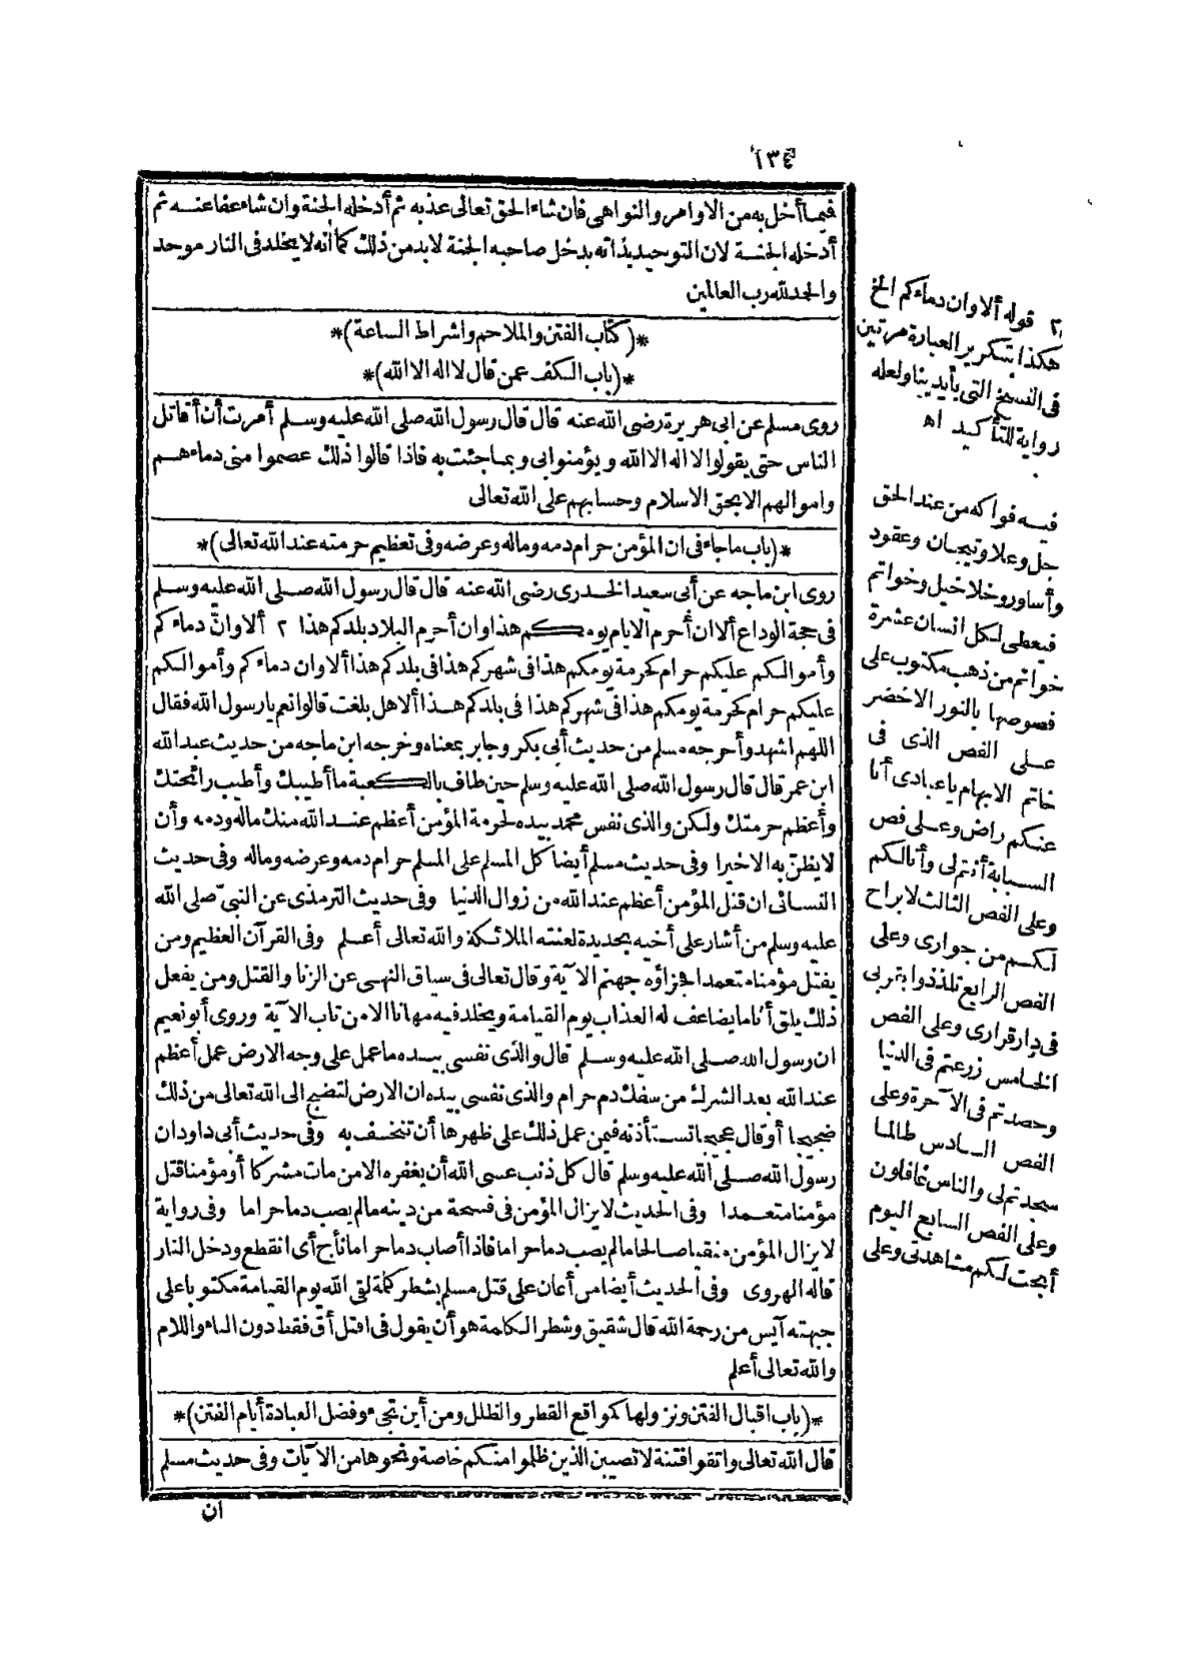 ١٣٤
فيما أخل به من الاوامر والنواهى فان شاء الحق تعالى عذبه ثم أدخله الجنة وان شاء عفا عنه ثم
أدخله الجنة لان التوحيد بذاته يدخل صاحبه الجنة لابد من ذلك كما أنه لا يخلد فى النار موحد
والحد لله رب العالمين
*(كتاب الفتن والملاحم واشراط الساعة)*
*(باب الكف عمن قال لا اله الا الله)*
روى مسلم عن ابى هريرة رضى الله عنه قال قال رسول الله صلى الله عليه وسلم أمرت أن أقاتل
الناس حتى يقولوا لا اله الا الله ويؤمنوا بى وبما جئت به فاذا قالوا ذلك عصموا منى دماءهم
واموالهم الا بحق الاسلام وحسابهم على الله تعالى
*(باب ما جاء فى ان المؤمن حرام دمه وماله وعرضه وفى تعظيم حرمته عند الله تعالى)*
روى ابن ماجه عن أبى سعيد الخدرى رضى الله عنه قال قال رسول الله صلى الله عليه وسلم
فى حجة الوداع ألا ان أحرم الايام يومكم هذا وان أحرم البلاد بلدكم هذا ٢ ألا وانّ دماءكم
وأموالكم عليكم حرام كحرمة يومكم هذا فى شهركم هذا فى بلدكم هذا ألا وان دماءكم وأموالكم
عليكم حرام كحرمة يومكم هذا فى شهركم هذا فى بلدكم هذا ألا هل بلغت قالوا نعم يا رسول الله فقال
اللهم اشهد وأخرجه مسلم من حديث أبى بكر وجابر بمعناه وخرجه ابن ماجه من حديث عبد الله
ابن عمر قال قال رسول الله صلى الله عليه وسلم حين طاف بالكعبة ما أطيبك وأطيب رائحتك
وأعظم حرمتك ولكن والذى نفس محمد بيده لحرمة المؤمن أعظم عند الله منك ماله ودمه وأن
لا يظنّ به الا خيرا وفى حديث مسلم أيضا كل المسلم على المسلم حرام دمه وعرضه وماله وفى حديث
النسائى ان قتل المؤمن أعظم عند الله من زوال الدنيا وفى حديث الترمذى عن النبىّ صلى الله
عليه وسلم من أشار على أخيه بحديدة لعنته الملائكة والله تعالى أعلم وفى القرآن العظيم ومن
يقتل مؤمنا متعمدا فجزاؤه جهنم الآية وقال تعالى فى سياق النهى عن الزنا والقتل ومن يفعل
ذلك يلق أثاما يضاعف له العذاب يوم القيامة ويخلد فيه مهانا الا من تاب الآية وروى أبو نعيم
ان رسول الله صلى الله عليه وسلم قال والذى نفسى بيده ما عمل على وجه الارض عمل أعظم
عند الله بعد الشرك من سفك دم حرام والذى نفسى بيده ان الارض لتضج الى الله تعالى من ذلك
ضجيجا أو قال عجيجا تستأذنه فيمن عمل ذلك على ظهرها أن تنخسف به وفى حديث أبى داود ان
رسول الله صلى الله عليه وسلم قال كل ذنب عسى الله أن يغفره الا من مات مشركا أو مؤمنا قتل
مؤمنا متعمدا وفى الحديث لا يزال المؤمن فى فسحة من دينه ما لم يصب دما حراما وفى رواية
لا يزال المؤمن معنقا صالحا ما لم يصب دما حراما فاذا أصاب دما حراما بلح أى انقطع ودخل النار
قاله الهروى وفى الحديث أيضا من أعان على قتل مسلم بشطر كلمة لقى الله يوم القيامة مكتوبا على
جبهته آيس من رحمة الله قال شقيق وشطر الكلمة هو أن يقول فى اقتل أق فقط دون التاء واللام
والله تعالى أعلم
*(باب اقبال الفتن ونزولها كمواقع القطر والظلل ومن أين تجىء وفضل العبادة أيام الفتن)*
قال الله تعالى واتقوا فتنة لا تصيبن الذين ظلموا منكم خاصة ونحوها من الآيات وفى حديث مسلم
ان
٢ قوله ألا وان دماءكم الخ
هكذا بتكرير العبارة مرتين
فى النسخ التى بأيدينا ولعله
رواية للتأكيد اه
فيسه فواكه من عند الحق
جل وعلا وتيجان وعقود
وأساور وخلاخيل وخواتم
فيعطى لكل انسان عشرة
خواتم من ذهب مكتوب على
فصوصها بالنور الاخضر
على الفص الذى فى
خاتم الابهام يا عبادى أنا
عنكم راض وعلى فص
السبابة أنتم لى وأنا لكم
وعلى الفص الثالث لا براح
لكم من جوارى وعلى
الفص الرابع تلذذوا بقربى
فى دار قرارى وعلى الفص
الخامس زرعتم فى الدنيا
وحصدتم فى الآخرة وعلى
الفص السادس طالما
سجدتم لى والناس غافلون
وعلى الفص السابع اليوم
أبحت لكم مشاهدتى وعلى